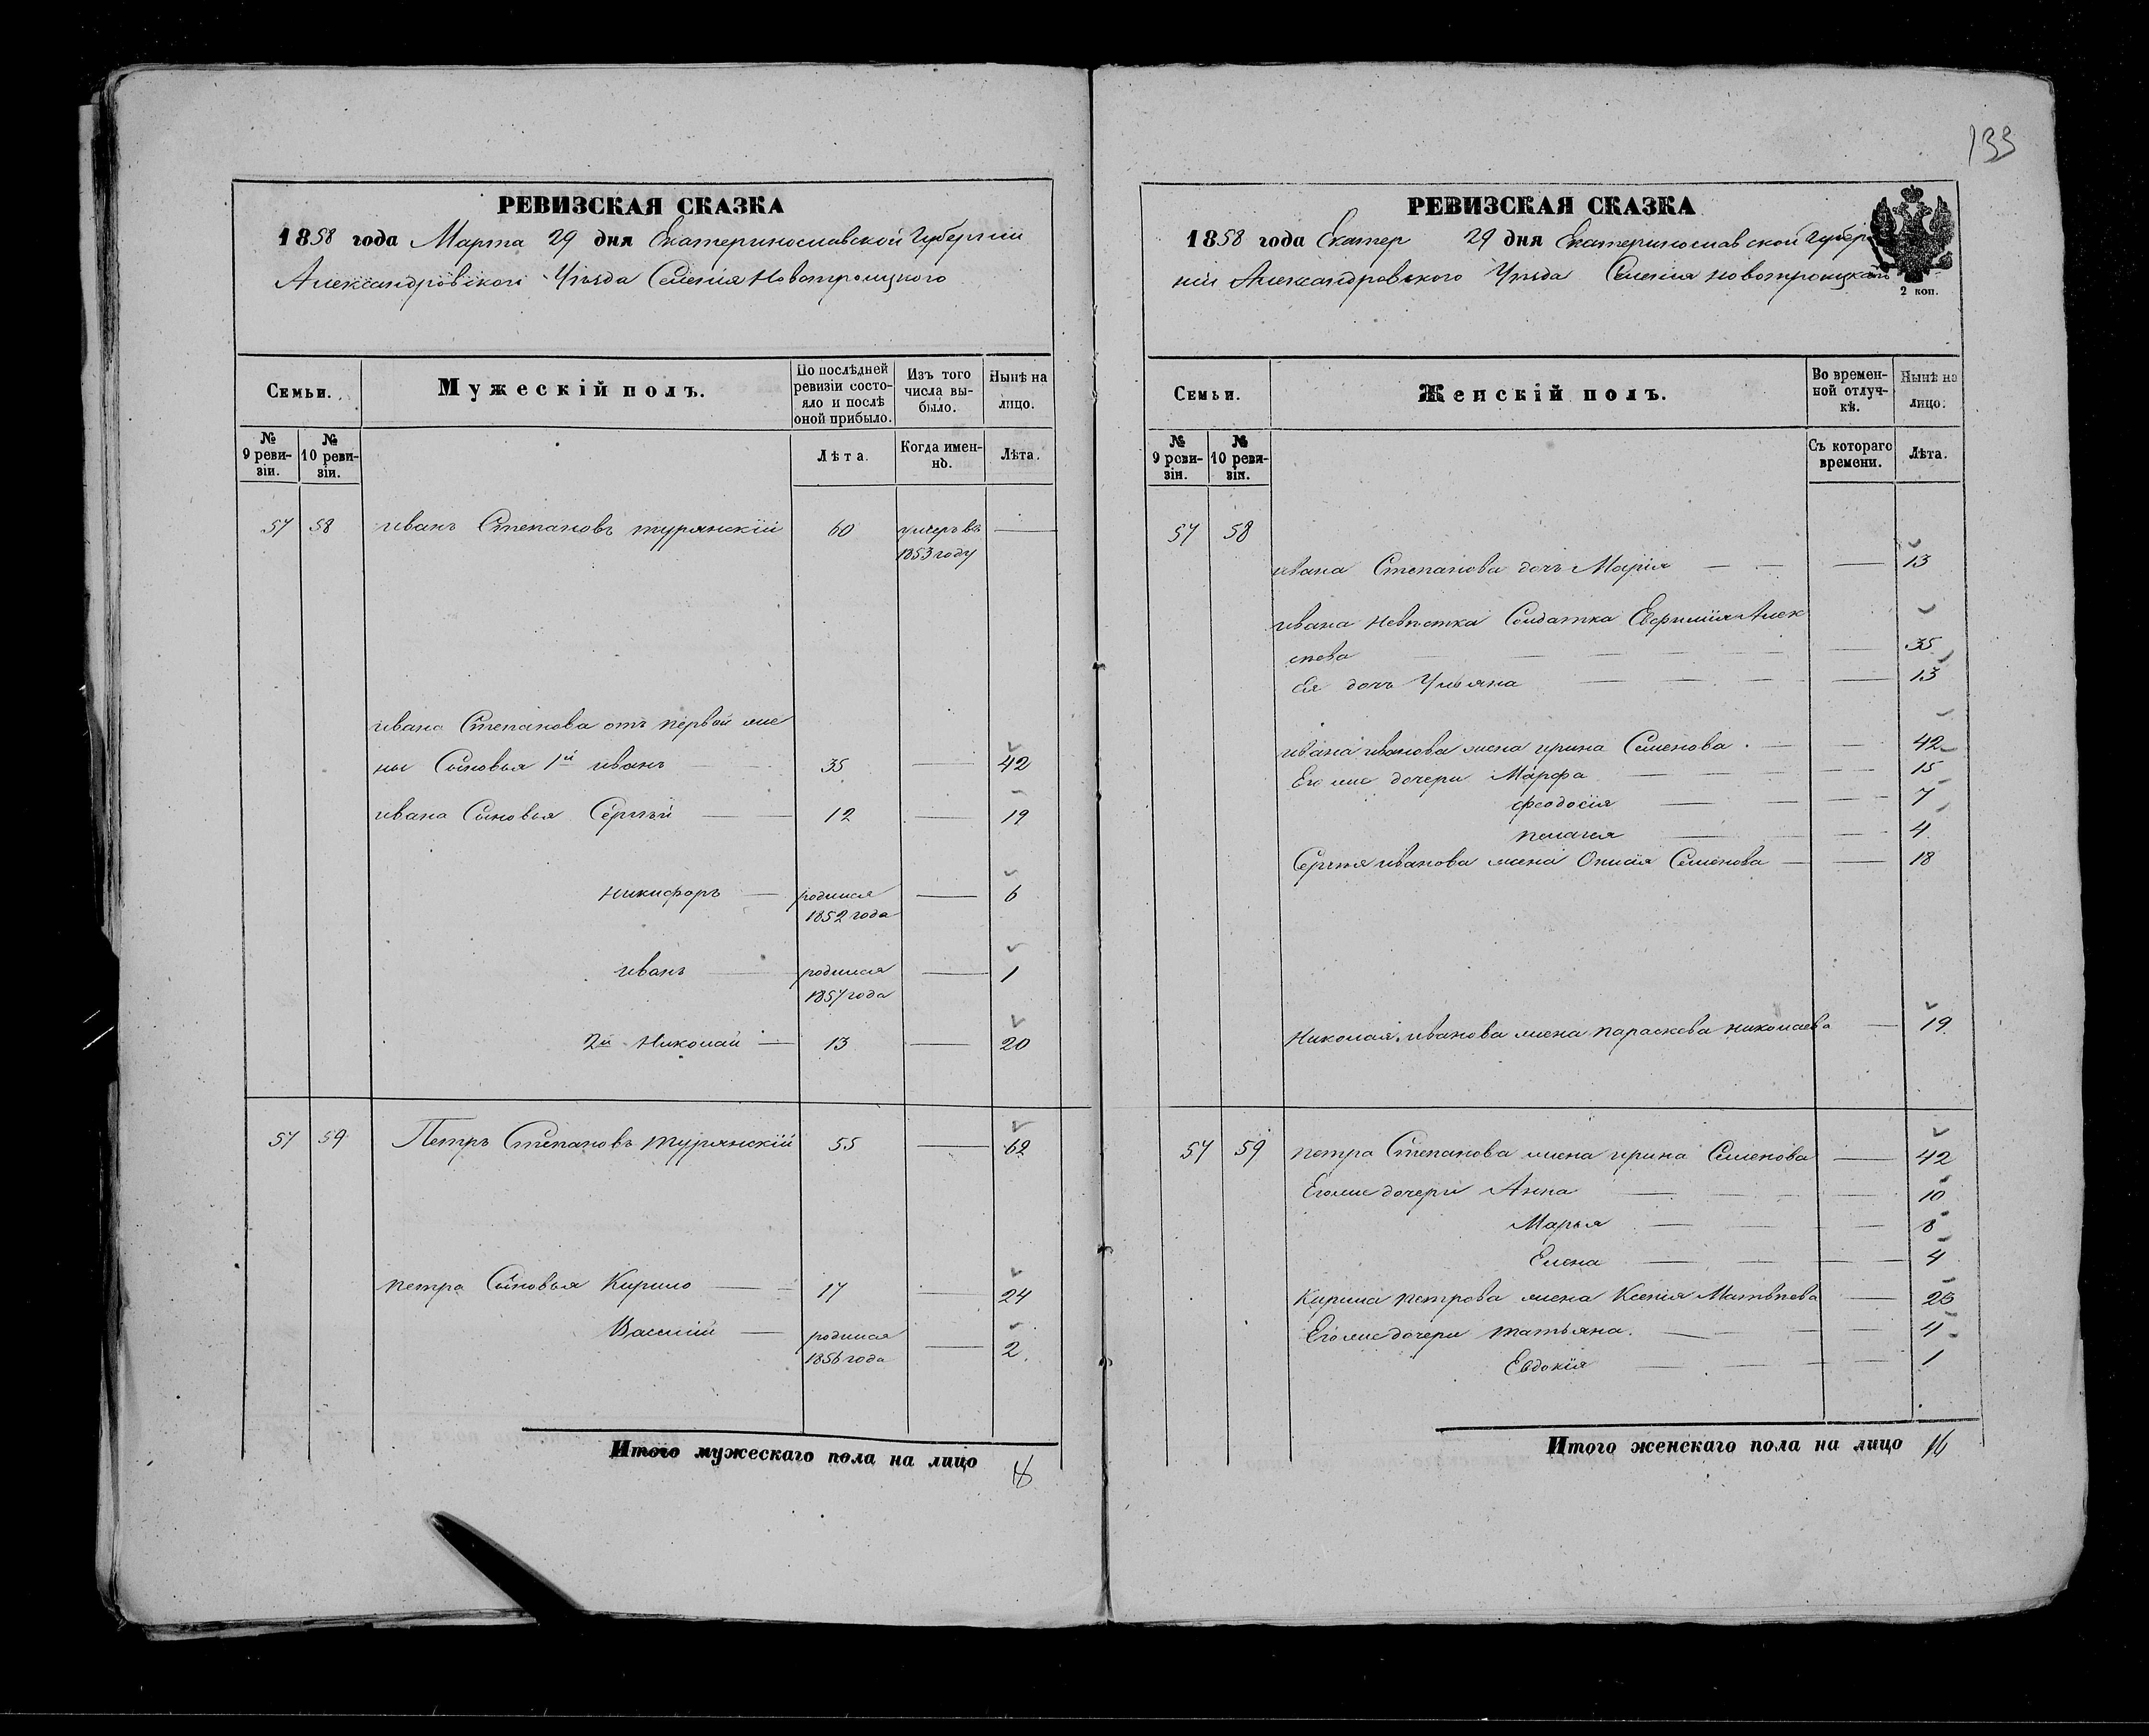 133
РЕВИЗСКАЯ СКАЗКА
1858 года Марта 29 дня Екатеринославской Губерніи
Александровскои Уѣзда Селенія Новотроицкого
Семьи.
Мужескій полъ.
По послѣдней ревизіи состояло и послѣ оной прибыло.
Изъ того числа выбыло.
Нынѣ на лицо.
№ 9 ревизіи.
№ 10 ревизіи.
Лѣта.
Когда именно.
Лѣта.
57 58 иванъ Степановъ турянскій 60 умеръ въ —
1853 году
ивана Степанова отъ первой же
ны Сыновья 1й иванъ 35 — 42
ивана Сыновья Сергѣй — 12 — 19
никифоръ — родился — 6
1852 года
иванъ — родился — 1
1857 года
2й Николай — 13 — 20
57 59 Петръ Степановъ турянскій 55 — 62
петра Сыновья Кирило — 17 — 24
Василій — родился — 2
1856 года
Итого мужескаго пола на лицо 8
РЕВИЗСКАЯ СКАЗКА
1858 года Екатер 29 дня Екатеринославской Губер
ніи Александровского Уѣзда Селенія новотроицкаго
2 коп.
Семьи.
Женскій полъ.
Во временной отлучкѣ.
Нынѣ на лицо.
№ 9 ревизіи.
№ 10 ревизіи.
Съ котораго времени.
Лѣта.
57 58
ивана Степанова дочь Марія — — 13
ивана невѣстка Солдатка Евфимія Алек
сѣева — — 35
Ея дочь Ульяна — — 13
ивана иванова жена ирина Семенова — — 42
Его же дочери Марфа — — 15
феодосія — — 7
пелагея — — 4
Сергѣя иванова жена Описія Семенова — — 18
Николая иванова жена параскева николаева — 19
57 59 петра Степанова жена ирина Семенова — 42
Его же дочери Анна — — 10
Марья — — 8
Елена — — 4
Кирила петрова жена Ксенія Матвѣева — 23
Его же дочери татьяна — — 4
Евдокія — — 1
Итого женскаго пола на лицо 16